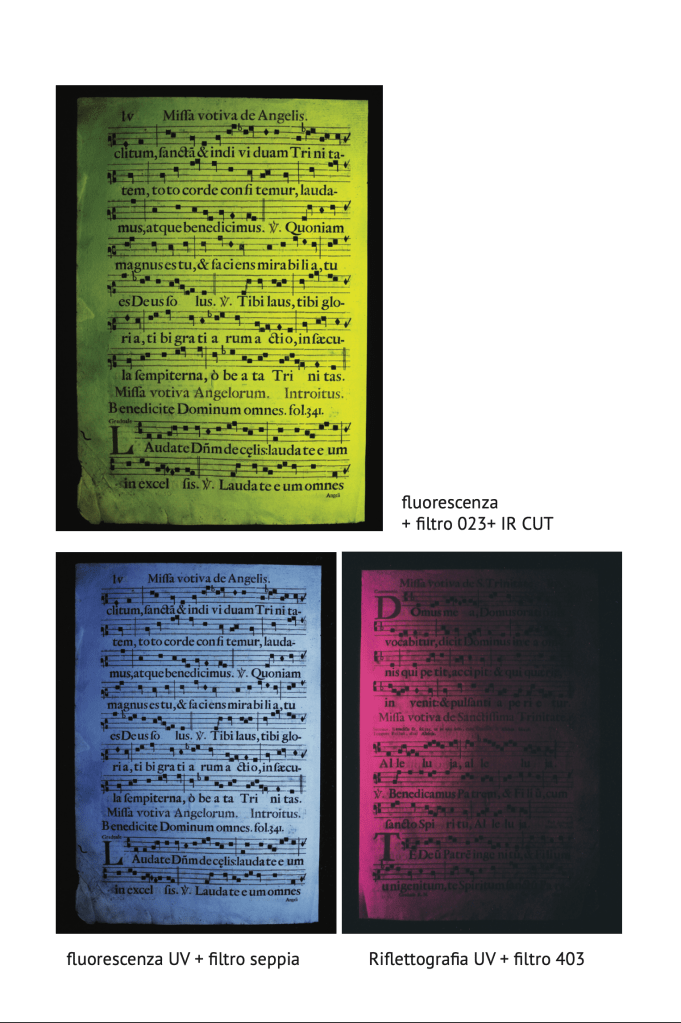 lv Miſſa votiva de Angelis.
clitum, ſanctã & indi vi duam Tri ni ta-
tem, to to corde con fi temur, lauda-
mus, atque benedicimus. ℣. Quoniam
magnus es tu, & fa ciens mira bi li a, tu
es De us ſo lus. ℣. Tibi laus, tibi glo-
ri a, ti bi gra ti a rum a ctio, in ſæcu-
la ſempiterna, ò be a ta Tri ni tas.
Miſſa votiva Angelorum. Introitus.
Benedicite Dominum omnes. fol.341.
Graduale
LAudate Dñm de cęlis: lauda te e um
in excel ſis. ℣. Lauda te e um omnes
Angeli
fluorescenza
+ filtro 023+ IR CUT
lv Miſſa votiva de Angelis.
clitum, ſanctã & indi vi duam Tri ni ta-
tem, to to corde con fi temur, lauda-
mus, atque benedicimus. ℣. Quoniam
magnus es tu, & fa ciens mira bi li a, tu
es De us ſo lus. ℣. Tibi laus, tibi glo-
ri a, ti bi gra ti a rum a ctio, in ſæcu-
la ſempiterna, ò be a ta Tri ni tas.
Miſſa votiva Angelorum. Introitus.
Benedicite Dominum omnes. fol.341.
Graduale
LAudate Dñm de cęlis: lauda te e um
in excel ſis. ℣. Lauda te e um omnes
Angeli
fluorescenza UV + filtro seppia
Miſſa votiva de S. Trinitate
DOmus me a, Domus
vocabitur, dicit Dominus
nis qui pe tit, accipit, & qui
in venit: & pulſanti a pe ri e
Miſſa votiva de Sanctiſſima Trinitate
Al le lu ja, al le lu
℣. Benedicamus Patrem, & Fi li ũ, cum
ſancto Spi ri tu, Al le lu ja
TE Deũ Patrẽ inge ni tũ, & Fili
unigenitum, te Spiritum
Riflettografia UV + filtro 403